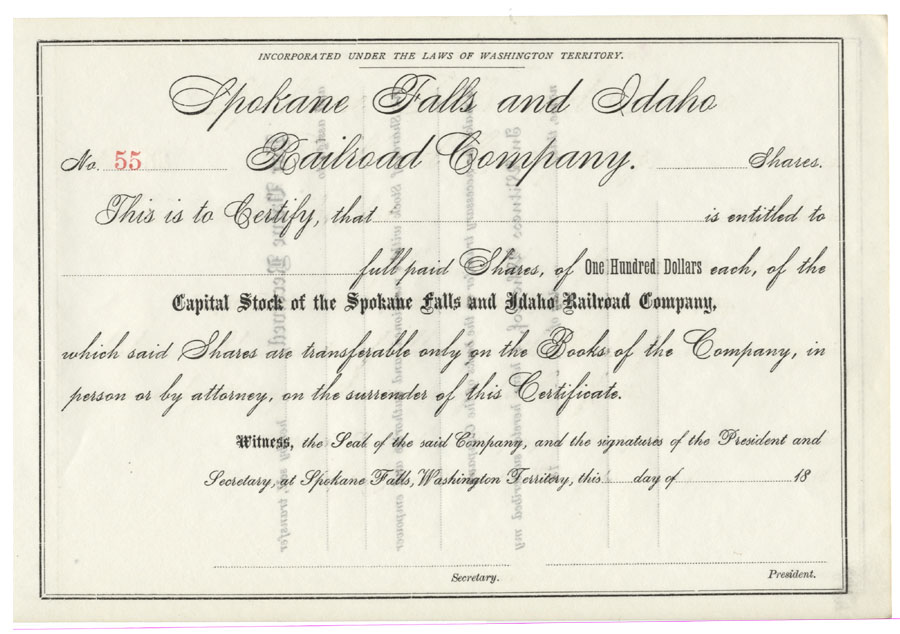 INCORPORATED UNDER THE LAWS OF WASHINGTON TERRITORY.
Spokane Falls and Idaho
No. 55 Railroad Company. Shares.
This is to Certify, that is entitled to
full paid Shares, of One Hundred Dollars each, of the
Capital Stock of the Spokane Falls and Idaho Railroad Company,
which said Shares are transferable only on the Books of the Company, in
person or by attorney, on the surrender of this Certificate.
Witness, the Seal of the said Company, and the signatures of the President and
Secretary, at Spokane Falls, Washington Territory, this day of 18
Secretary. President.